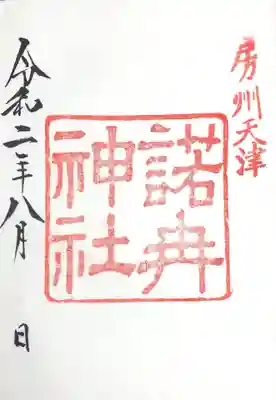 房州天津
諾冉
神社
令和二年八月 日